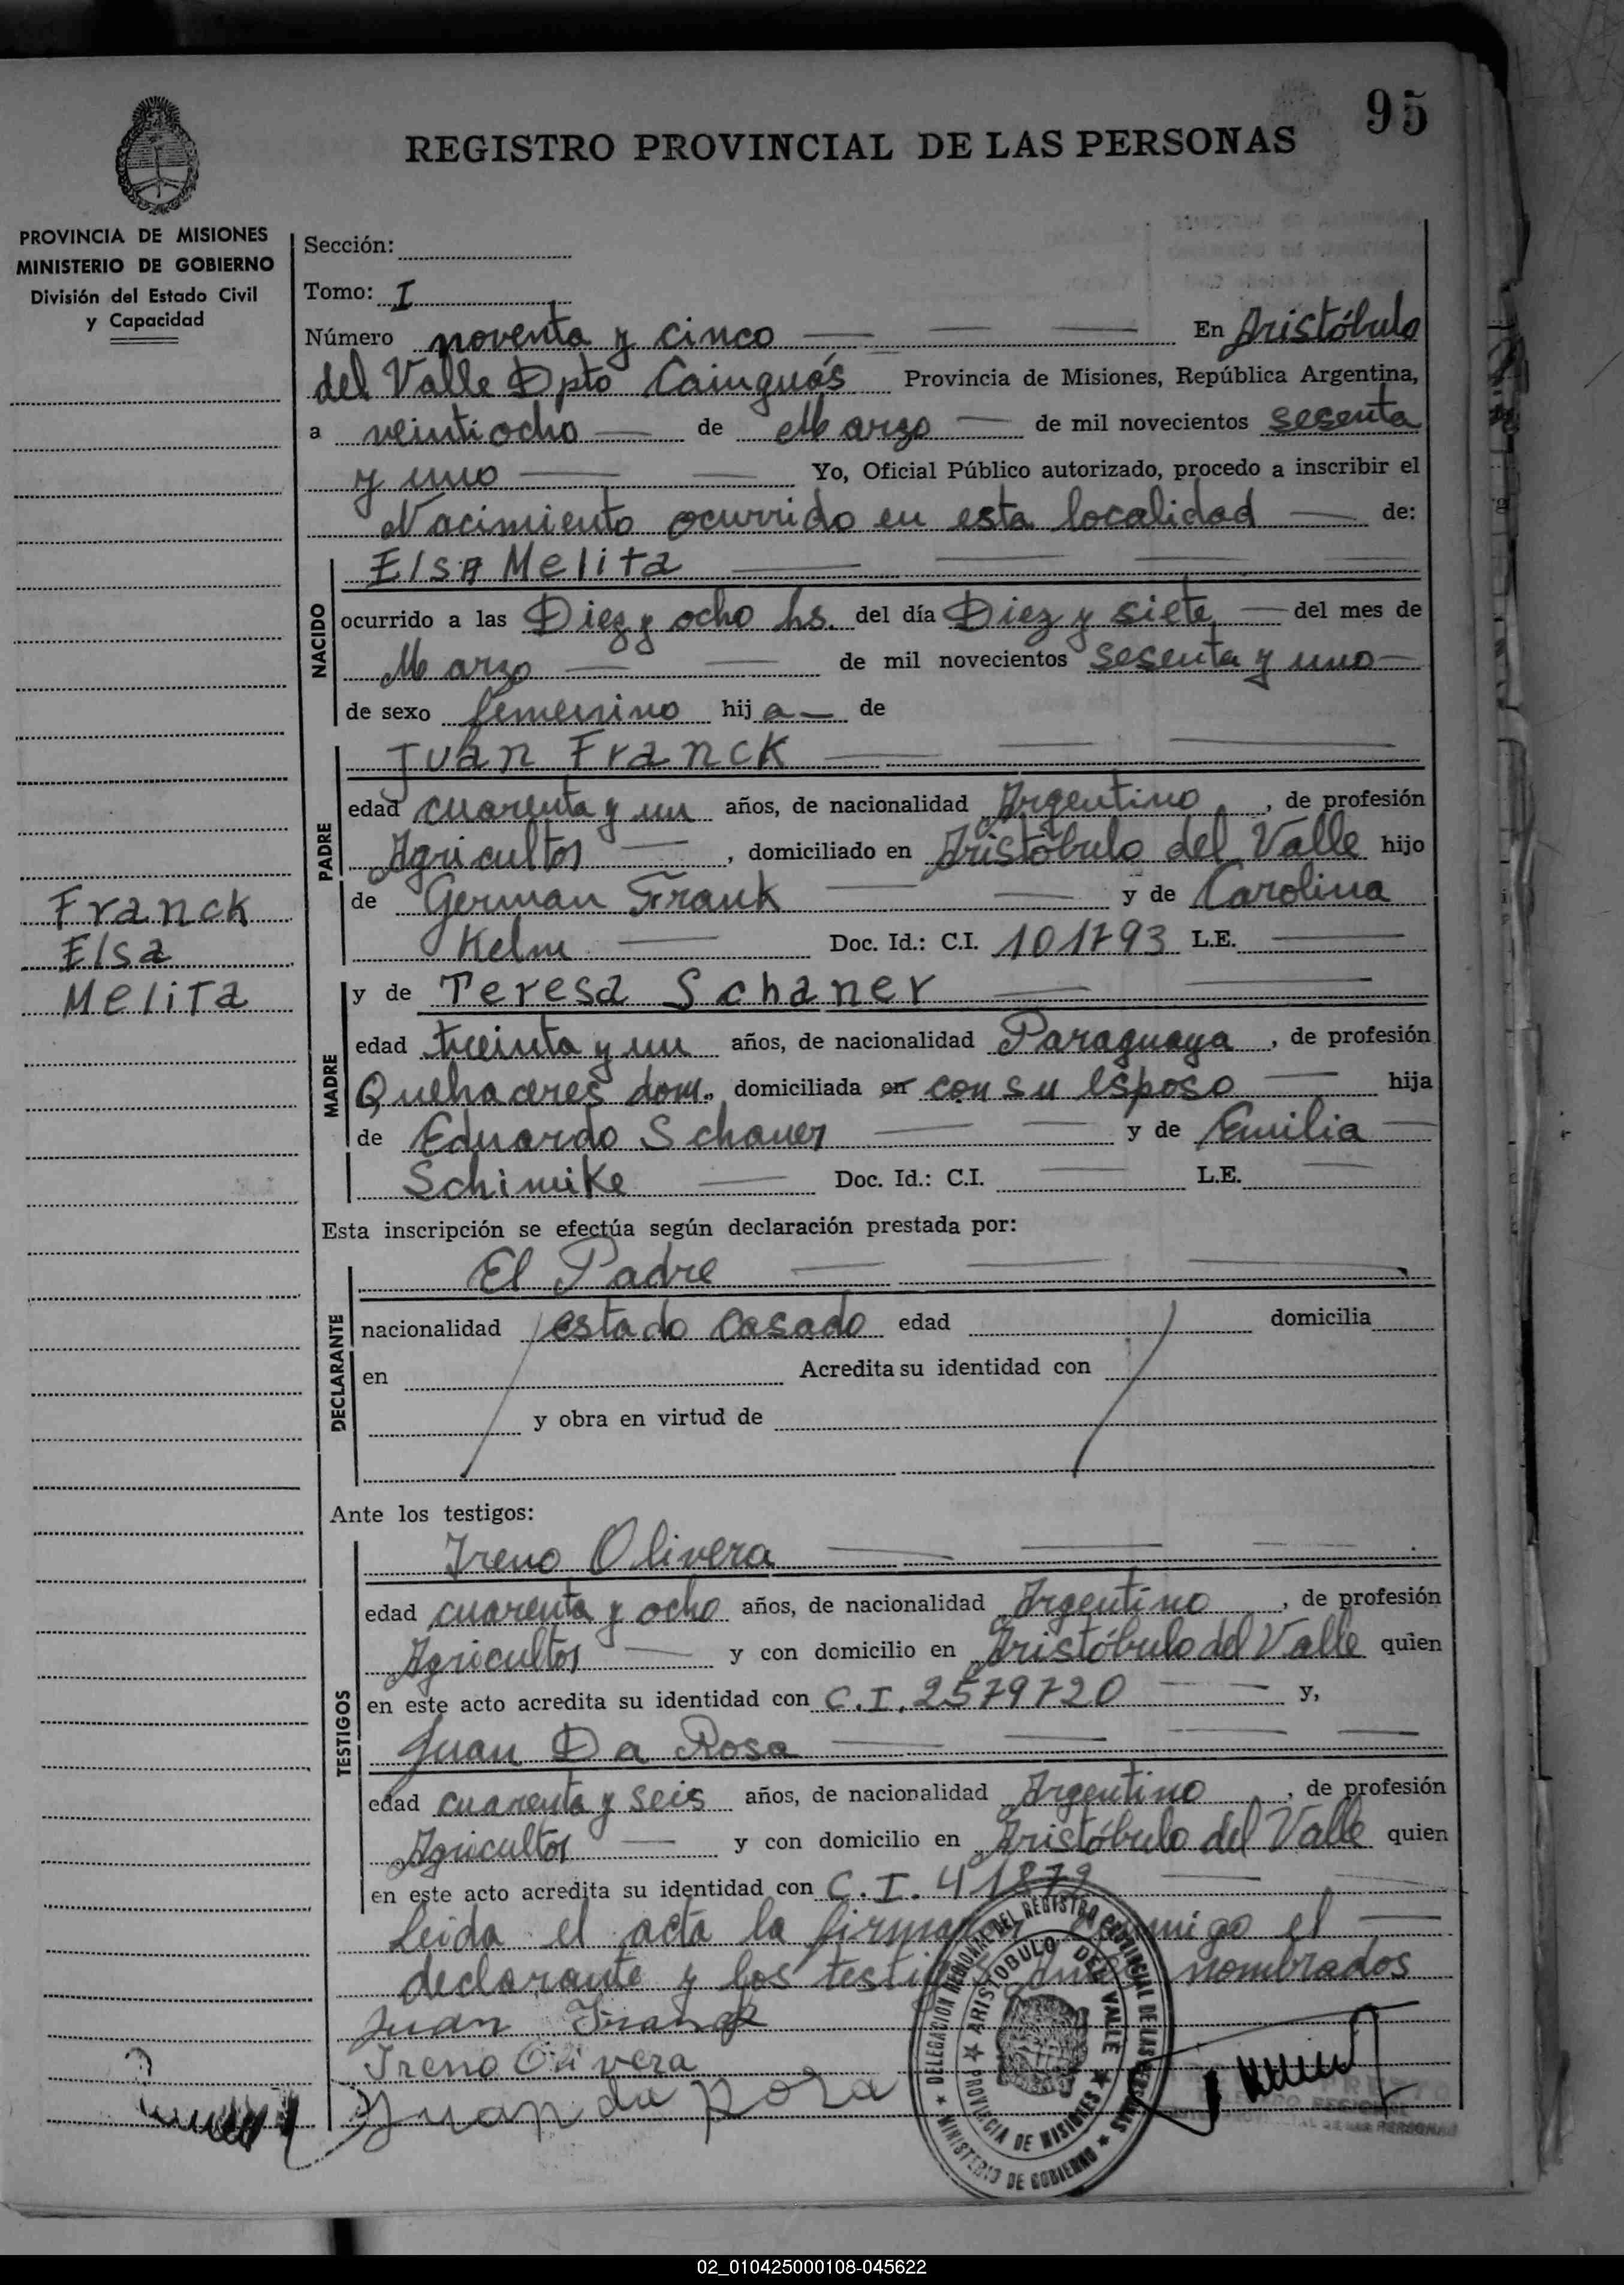 95
REGISTRO PROVINCIAL DE LAS PERSONAS
PROVINCIA DE MISIONES
MINISTERIO DE GOBIERNO
División del Estado Civil
y Capacidad
Sección:
Tomo: I
Número noventa y cinco En Aristóbulo
del Valle Dpto Cainguás Provincia de Misiones, República Argentina,
a veintiocho de Marzo de mil novecientos sesenta
y uno Yo, Oficial Público autorizado, procedo a inscribir el
Nacimiento ocurrido en esta localidad de:
NACIDO
Elsa Melita
ocurrido a las Diez y ocho hs. del día Diez y siete del mes de
Marzo de mil novecientos sesenta y uno
de sexo femenino hij a de
PADRE
Juan Franck
edad cuarenta y un años, de nacionalidad Argentino, de profesión
Agricultor, domiciliado en Aristóbulo del Valle hijo
de German Frank y de Carolina
Kelm Doc. Id.: C.I. 101793 L.E.
Franck
Elsa
Melita
MADRE
y de Teresa Schaner
edad treinta y un años, de nacionalidad Paraguaya, de profesión
Quehaceres dom., domiciliada en con su esposo hija
de Eduardo Schaner y de Emilia
Schimike Doc. Id.: C.I. L.E.
Esta inscripción se efectúa según declaración prestada por:
DECLARANTE
El Padre
nacionalidad estado casado edad domicilia
en Acredita su identidad con
y obra en virtud de
Ante los testigos:
TESTIGOS
Ireno Olivera
edad cuarenta y ocho años, de nacionalidad Argentino, de profesión
Agricultor y con domicilio en Aristóbulo del Valle quien
en este acto acredita su identidad con C.I. 2579720 y,
Juan Da Rosa
edad cuarenta y seis años, de nacionalidad Argentino, de profesión
Agricultor y con domicilio en Aristóbulo del Valle quien
en este acto acredita su identidad con C.I. 41879
Leida el acta la firman conmigo el
declarante y los testigos antes nombrados
Juan Frank
Ireno Olivera
Juan da Rosa
DELEGACION REGIONAL DEL REGISTRO PROVINCIAL DE LAS PERSONAS
ARISTOBULO DEL VALLE
PROVINCIA DE MISIONES
MINISTERIO DE GOBIERNO
02_010425000108-045622